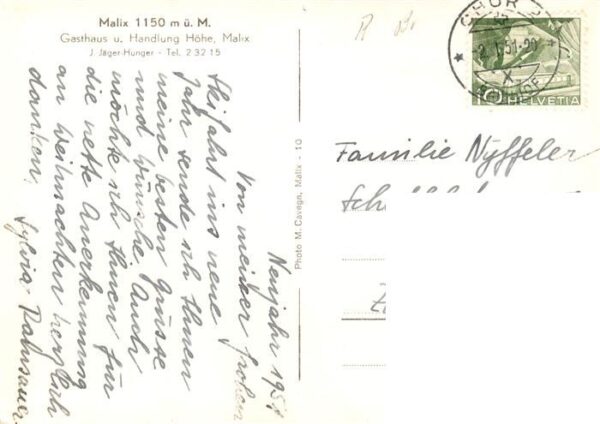 Malix 1150 m ü. M.
Gasthaus u. Handlung Höhe, Malix
J. Jäger-Hunger - Tel. 2 32 15
Neujahr 1951
Von meiner frohen
Skifahrt ins neue
Jahr sende ich Ihnen
meine besten Grüsse
und Wünsche. Auch
möchte ich Ihnen für
die nette Anerkennung
an Weihnachten herzlich
danken.
Sylvia
Photo M. Cavegn, Malix - 10
CHUR 2
2.1.51-20
X
10 HELVETIA
Familie Nyffeler